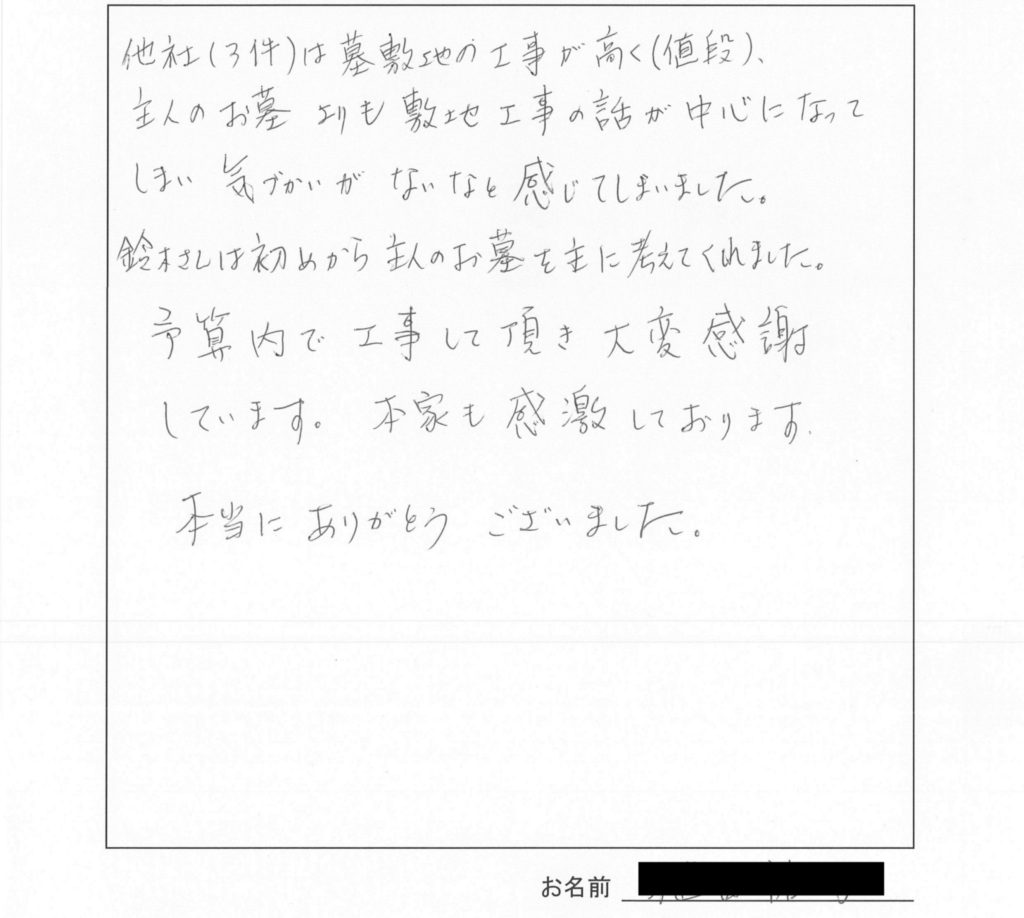 他社(3件)は墓敷地の工事が高く(値段)、
主人のお墓よりも敷地工事の話が中心になって
しまい気づかいがないなと感じてしまいました。
鈴木さんは初めから主人のお墓を主に考えてくれました。
予算内で工事して頂き大変感謝
しています。本家も感激しております.
本当にありがとうございました。
お名前